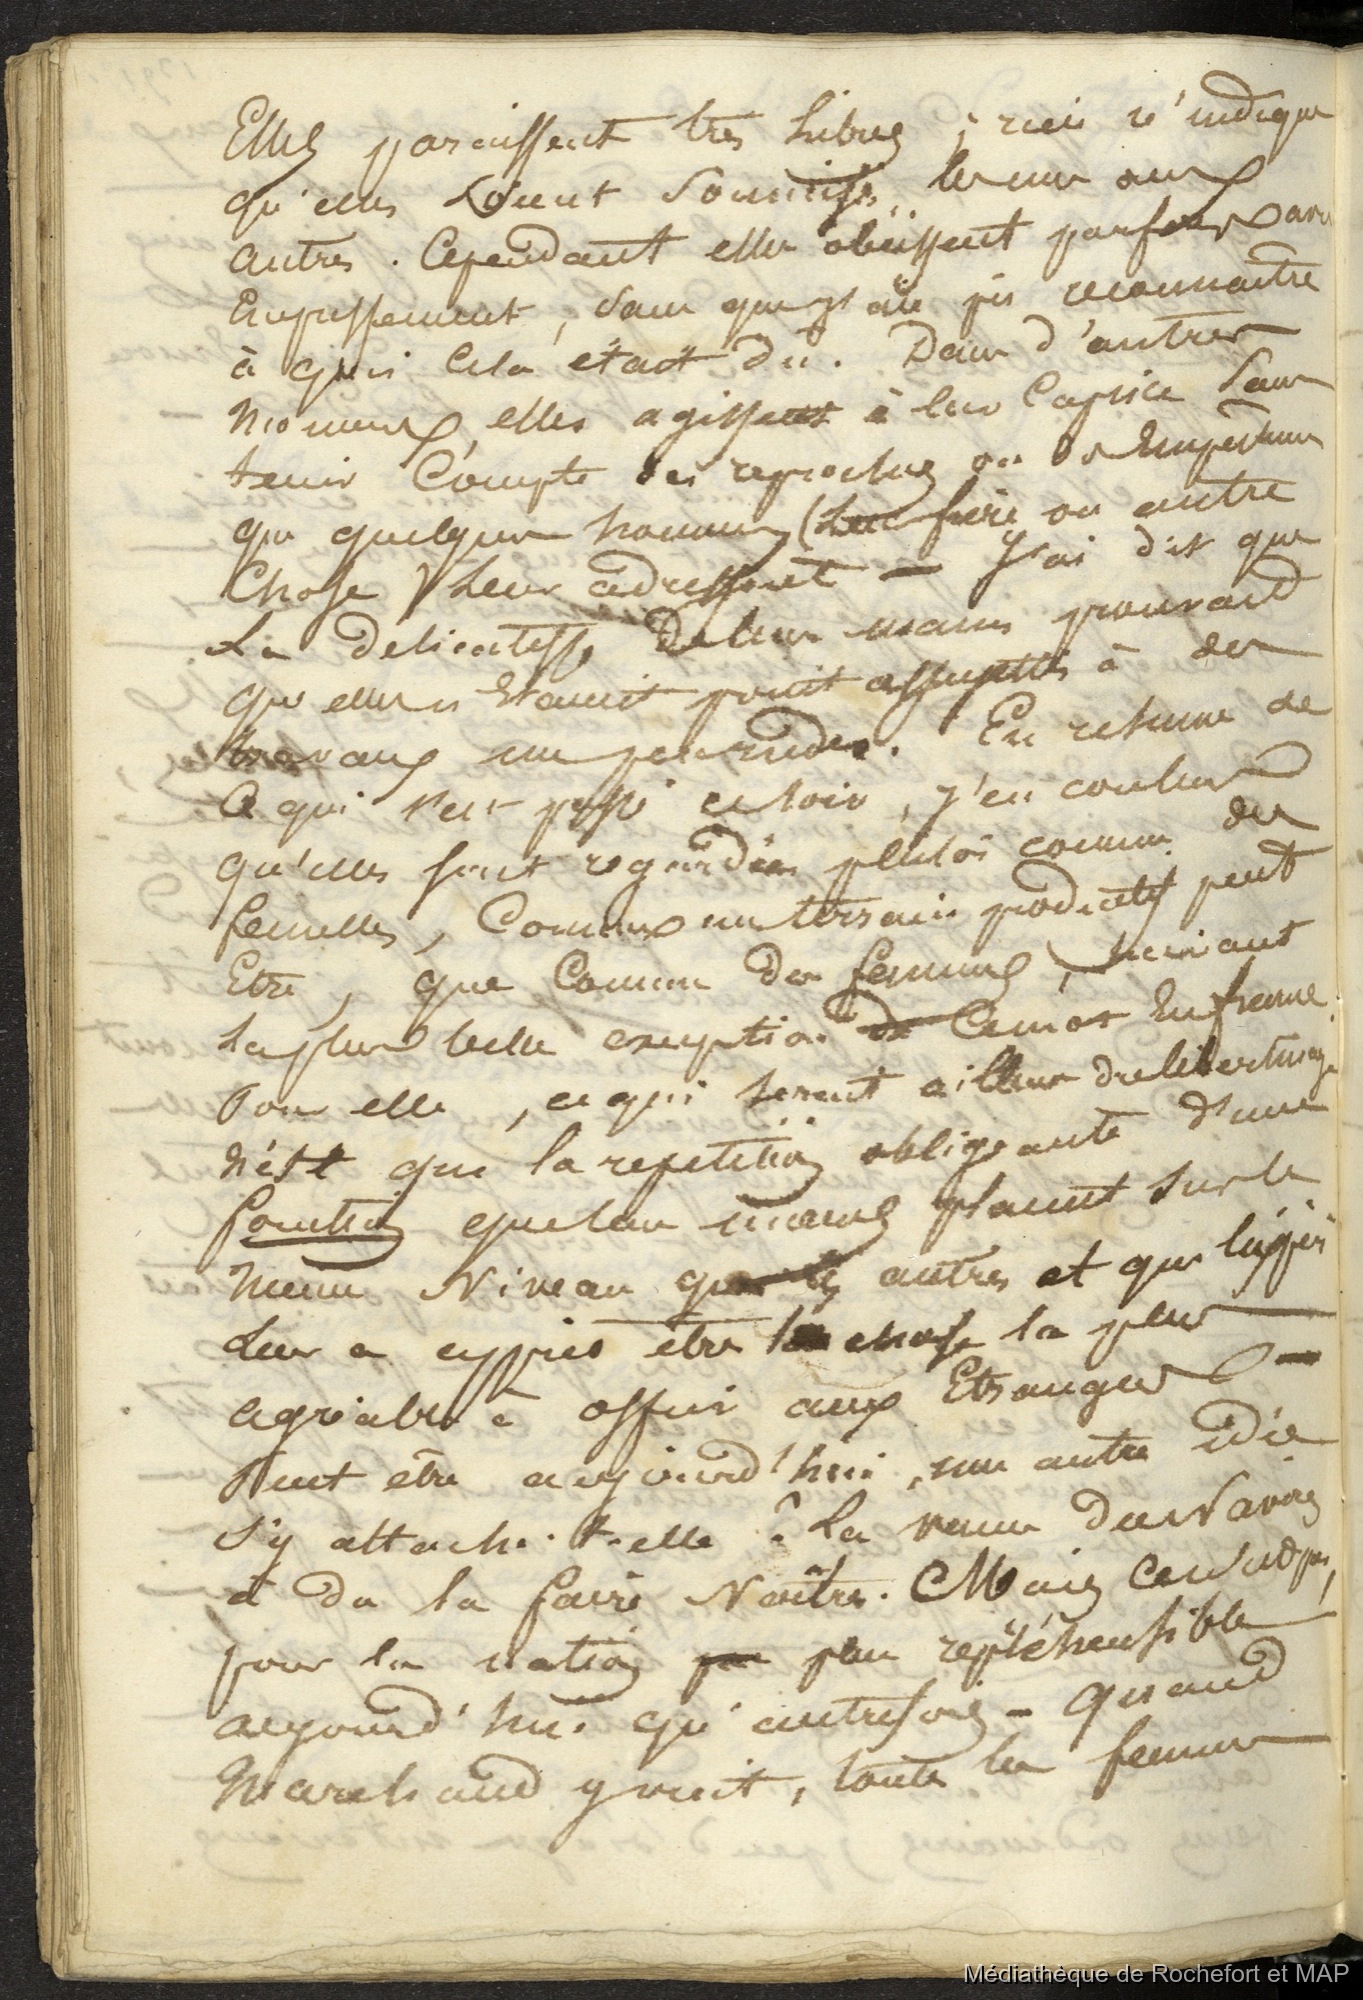 Elles paroissent très libres ; rien n'indique
qu'elles soient soumises, les unes aux
autres. Cependant elles obéissent parfois avec
Empressement, sans que j'aie pu reconnaître
à quoi cela était dû. Dans d'autres
momens, elles agissent à leur Caprice sans
tenir Compte des reproches ou
que quelques hommes (leur frère ou autre
Chose) leur adressent — J'ai dit que
la délicatesse de leurs mains prouvait
qu'elles n'étaient point assujetties à des
travaux un peu rudes. En résumé de
ce qui s'est passé ce soir, j'en conclus
qu'elles sont regardées plutôt comme des
femelles, Comme un terrain productif peut
Etre, que Comme des femmes,
la plus belle exception Ce mot En femme
Pour elle, ce qui serait ailleurs du libertinage
n'est que la répétition obligeante d'une
fonction que leurs mœurs placent sur le
même Niveau que les autres et que
leur a appris être la chose la plus
agréable à offrir aux Etrangers —
Peut être aujourd'hui, une autre idée
s'y attache-t-elle ? La venue des Navires
a du la faire Naître. Mais Ce n'est pas,
pour la nation plus répréhensible
aujourd'hui qu'autrefois - quand
Marchand y vint, toutes les femmes
Médiathèque de Rochefort et MAP